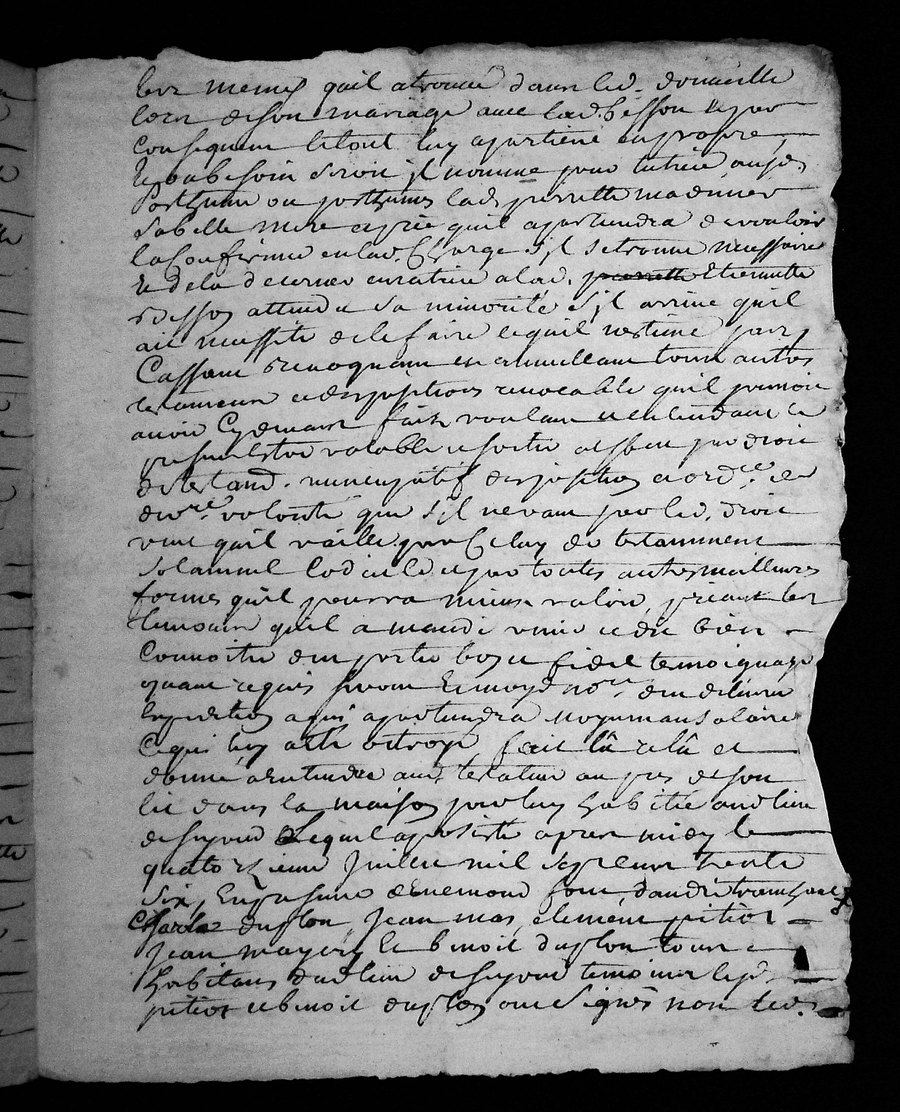 les memes quil a trouvé dans led. domicille
lors de son mariage avec lad. besson & par
consequent le tout luy apartient en propre
& ou besoin seroit il nomme pour tutrice aus.
posthume ou posthumes lad. pierrette
sa belle mere et prie quil apartiendra de vouloir
la Confirmer en lad. Charge s'il se trouve necessaire
& de la decerner curatrice a lad. pierrette Etiennette
besson attendu sa minorité s'il arrive quil
ait necessité de le faire ce quil n'estime pas,
Cassant revoquant et annullant tous autres
testament et dispositions revocable quil pourroit
avoir Cydevant fait voulant et entendant le
present estre valable et sortir a effect par droit
de testament nuncupatif disposition et ord.ce de
der.re volonté que s'il ne vaut par led. droit
veut quil vaille par Celuy de testamment
solamnel Codicile et par toutes autres meilleures
formes quil pourra mieux valoir, priant les
temoins quil a mandé venir et dit bien
Connoitre d'en porter bon et fidel temoignage
quant requis seront & moyd. no.re d'en delivrer
expedition a qui apartiendra moyennant salaire
Ce qui luy a esté octroyé, fait lû relû et
donné a entendre aud. testateur au pres de son
lit dans la maison par luy habitée aud. lieu
de Lequel apres midy le
quatorzieme Juillet mil sept cent trente
six, En presence d'Enemond four, d'andré
Charle duplon, Jean mas, clement pitiot
Jean mayery & benoit duplon tous
habitans dud. lieu de temoins lesd.
pitiot et benoit duplon ont signés non led.